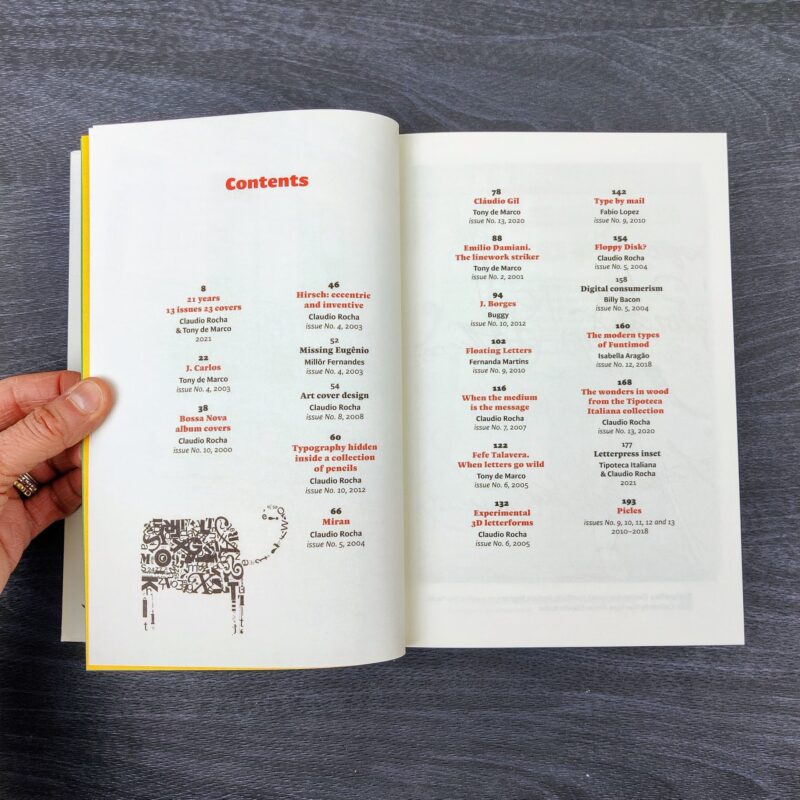 Contents
8
21 years
13 issues 23 covers
Claudio Rocha
& Tony de Marco
2021
22
J. Carlos
Tony de Marco
issue No. 4, 2003
38
Bossa Nova
album covers
Claudio Rocha
issue No. 10, 2000
46
Hirsch: eccentric
and inventive
Claudio Rocha
issue No. 4, 2003
52
Missing Eugênio
Millôr Fernandes
issue No. 4, 2003
54
Art cover design
Claudio Rocha
issue No. 8, 2008
60
Typography hidden
inside a collection
of pencils
Claudio Rocha
issue No. 10, 2012
66
Miran
issue No. 5, 2004
78
Cláudio Gil
Tony de Marco
issue No. 13, 2020
88
Emilio Damiani.
The linework striker
Tony de Marco
issue No. 2, 2001
94
J. Borges
Buggy
issue No. 10, 2012
102
Floating Letters
Fernanda Martins
issue No. 9, 2010
116
When the medium
is the message
Claudio Rocha
issue No. 7, 2007
122
Fefe Talavera.
When letters go wild
Tony de Marco
issue No. 6, 2005
132
Experimental
3D letterforms
Claudio Rocha
issue No. 6, 2005
142
Type by mail
Fabio Lopez
issue No. 9, 2010
154
Floppy Disk?
Claudio Rocha
issue No. 5, 2004
158
Digital consumerism
Billy Bacon
issue No. 5, 2004
160
The modern types
of Funtimod
Isabella Aragão
issue No. 12, 2018
168
The wonders in wood
from the Tipoteca
Italiana collection
Claudio Rocha
issue No. 13, 2020
177
Letterpress inset
Tipoteca Italiana
& Claudio Rocha
2021
193
Picles
issues No. 9, 10, 11, 12 and 13
2010–2018